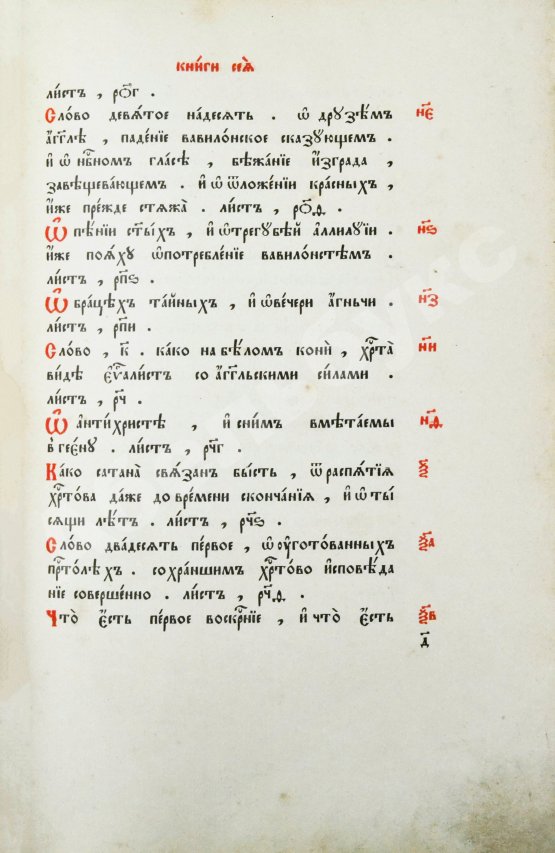 кни́ги сея̀
ли́стъ , рⷪ҇г .
Сло́во девѧ́тое на́десѧть . ѡ҆ дрꙋзѣ́мъ нⷭ҇є
а҆́гг҃лѣ , паде́нїе вавило́нское сказꙋ́ющемъ .
и҆ ѡ҆ нбⷭ҇номъ гла́сѣ , бѣжа́нїе и҆з̾гра́да ,
завѣщева́ющемъ . и҆ ѡ҆ ѿложе́нїи кра́сныхъ ,
и҆́же пре́жде стѧжа̀ . ли́стъ , рⷪ҇ѳ .
Ѡ҆ пѣ́нїи ст҃ы́хъ , и҆ ѡ҆трегꙋ́бѣй аллилꙋ́їи . нⷭ҇ѕ
и҆́же поѧ́хꙋ ѡ҆потребле́нїе вавило́нстѣмъ .
ли́стъ , рпⷭ҇ѕ .
Ѡ҆ бра́цѣхъ та́йныхъ , и҆ ѡ҆ве́чери а҆́гньчи . нⷭ҇з
ли́стъ , рпи .
Сло́во , к҃ . ка́ко на бѣ́ломъ конѝ , хрⷭ҇та̀ нⷭ҇и
ви́дѣ є҆ѵⷢ҇али́стъ со а҆́гг҃льскими си́лами .
ли́стъ , рч҃ .
Ѡ҆ анти́христѣ , и҆ сни́мъ вмѣта́емы нⷭ҇ѳ
в ̾гее́нꙋ . ли́стъ , рч҃г .
Ка́ко сатана̀ свѧ́занъ бы́сть , ѿ распѧ́тїѧ ѯ҃
хрⷭ҇то́ва да́же до вре́мени сконча́нїѧ , и҆ ѡ҆ ты́
сѧщи лѣ́тъ . ли́стъ , рч҃ѕ .
Сло́во два́десѧть пе́рвое , ѡ҆ оу҆гото́ванныхъ ѯ҃а
прⷭ҇то́лѣхъ . сохра́ншимъ хрⷭ҇то́во и҆сповѣ́да
нїе соверше́нно . ли́стъ , рч҃ѳ .
Что̀ є҆́сть пе́рвое воскрⷭ҇нїе , и҆ что̀ є҆́сть ѯ҃в
д҃